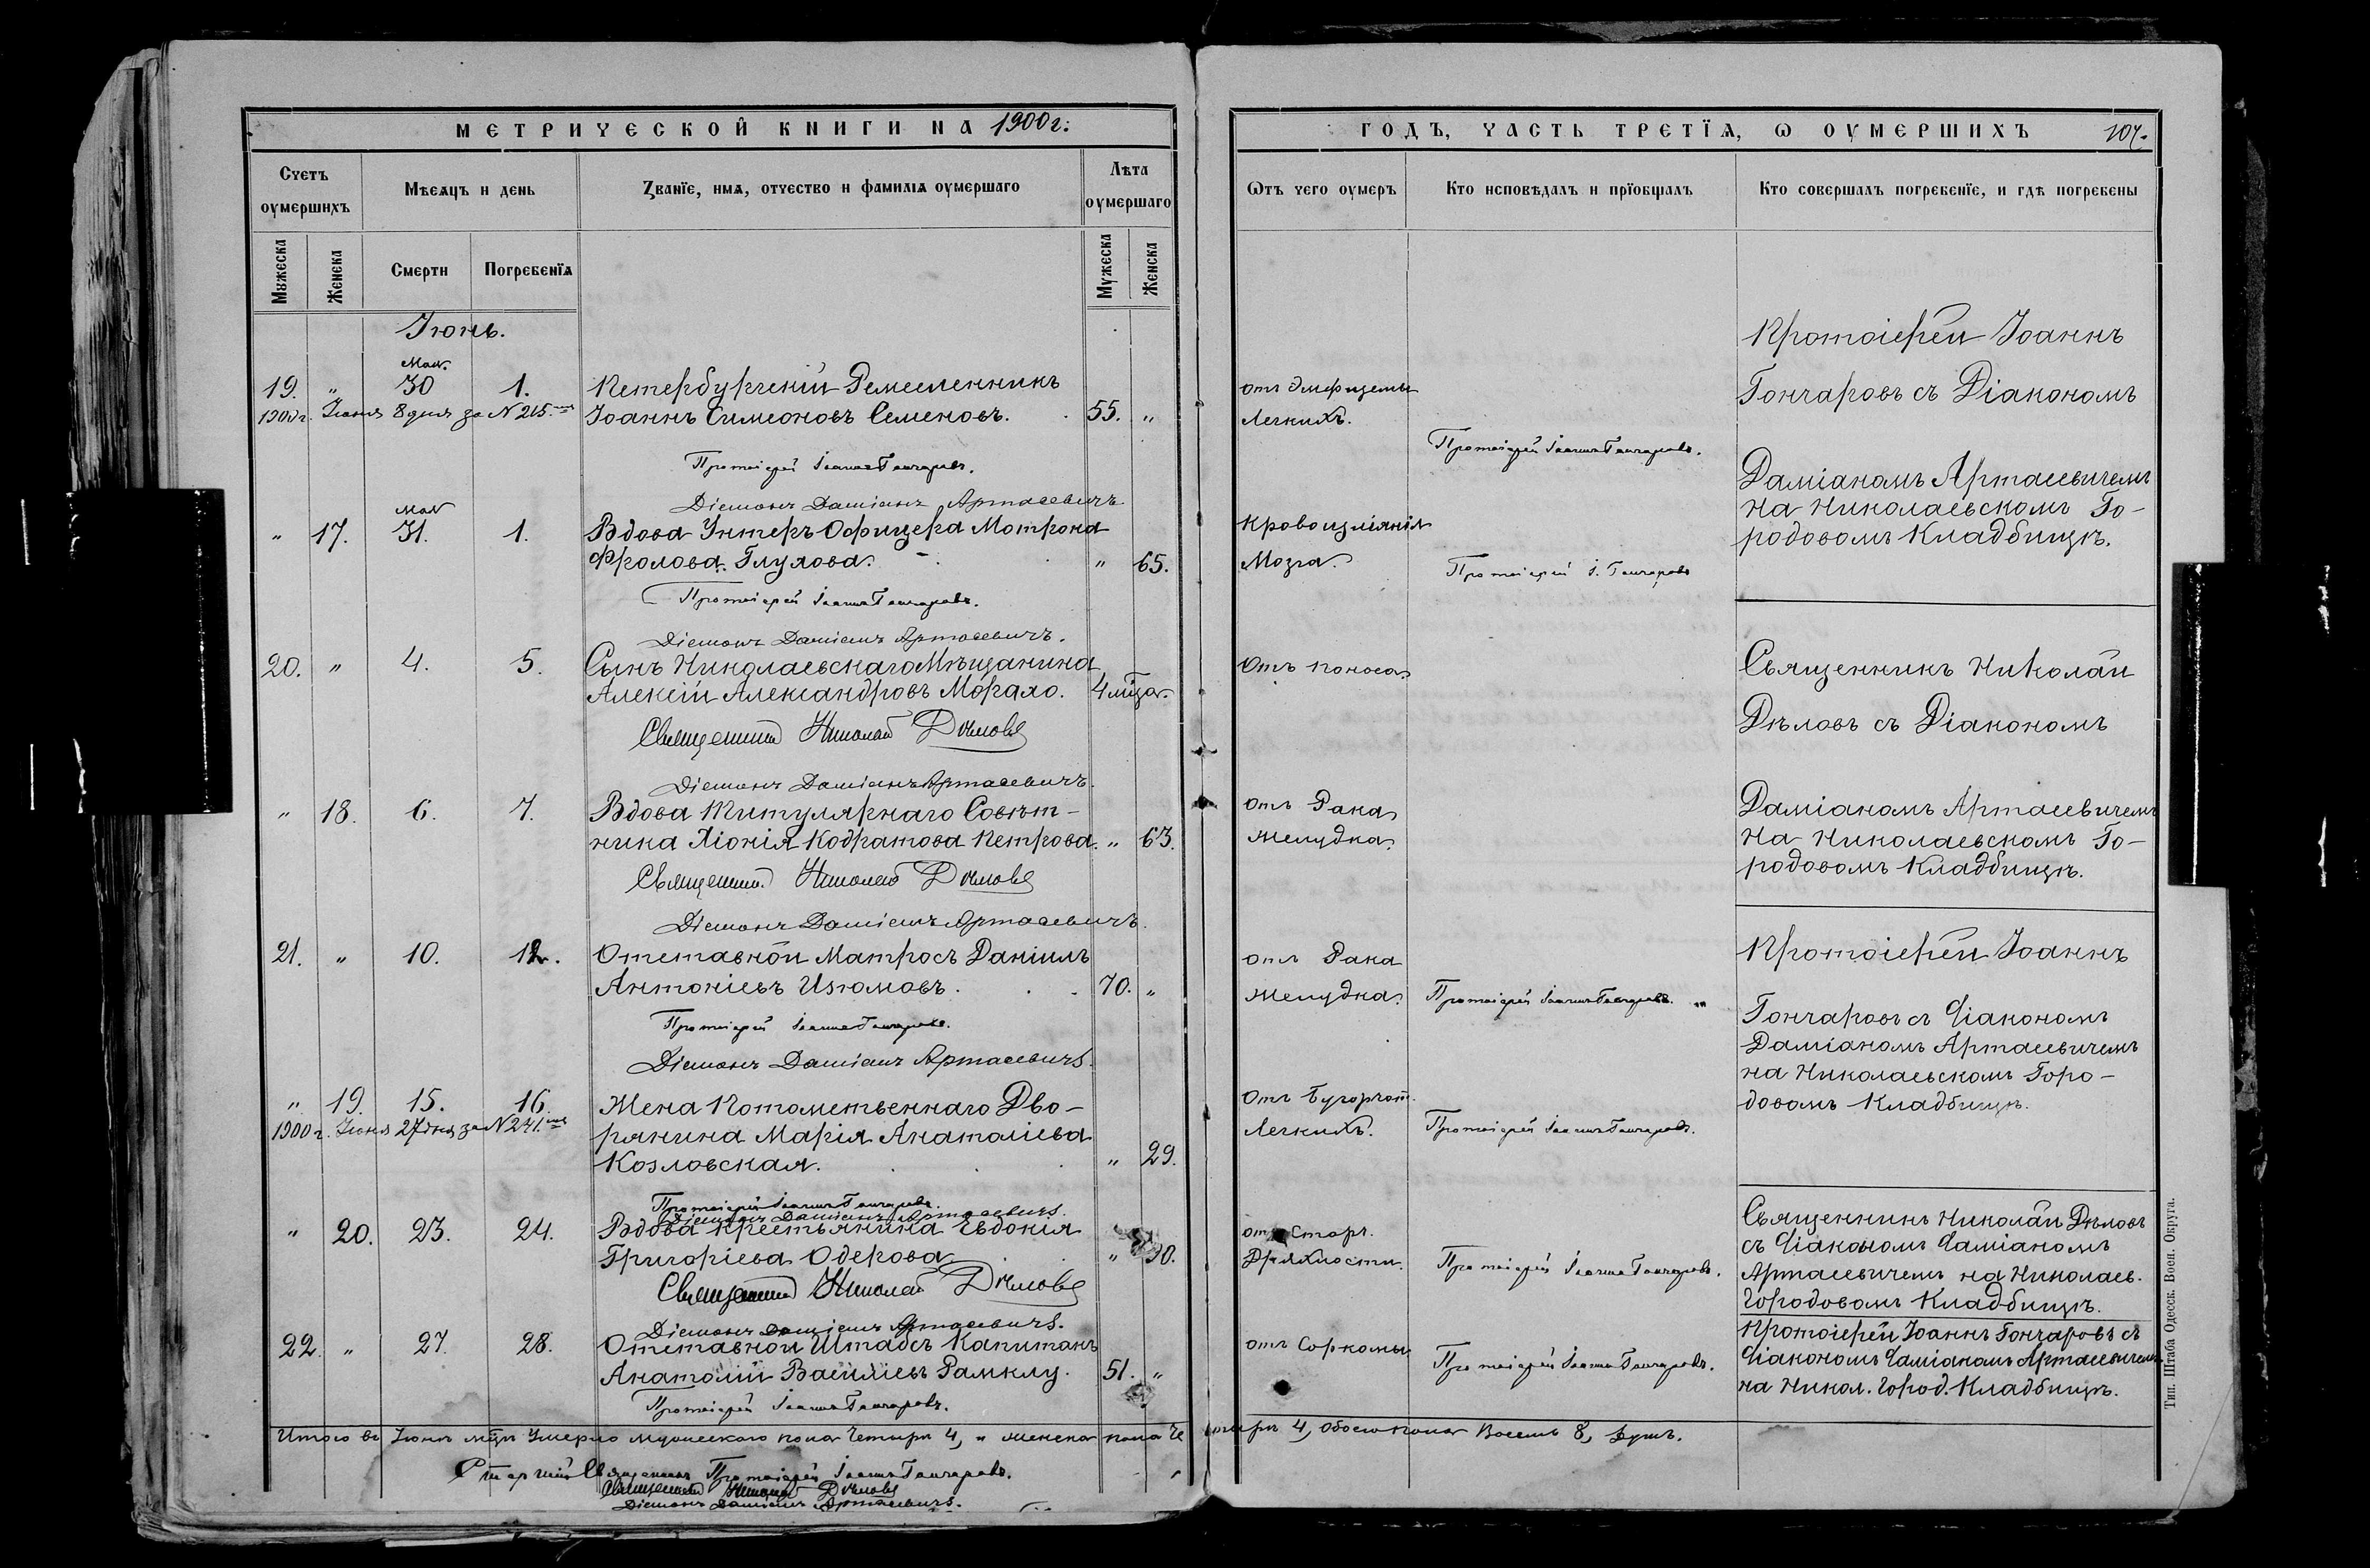 МЕТРИЧЕСКОЙ КНИГИ НА 1900 г:
Счетъ оумершихъ
Мѣсяцъ и день
Званїе, имя, отчество и фамилїя оумершаго
Лѣта оумершаго
Мужеска
Женска
Смерти
Погребенїя
Мужеска
Женска
Іюнь.
Мая.
19. " 30 1. Петербургскій Ремесленникъ
1900 г. Іюня 8 дня за N 215. Іоаннъ Симеоновъ Семеновъ. 55. "
Протоіерей Іоаннъ Гончаровъ.
Діаконъ Даміанъ Артасевичъ
Мая
" 17. 31. 1. Вдова Унтеръ Офицера Мотрона
Фролова Глухова. " 65.
Протоіерей Іоаннъ Гончаровъ.
Діаконъ Даміанъ Артасевичъ.
20. " 4. 5. Сынъ Николаевскаго Мѣщанина
Алексій Александровъ Морахо. 4 мѣца.
Священникъ Николай Дѣловъ
Діаконъ Даміанъ Артасевичъ.
" 18. 6. 7. Вдова Титулярнаго Совѣт-
ника Хіонія Кодратова Петрова. " 63.
Священник. Николай Дѣловъ
Діаконъ Даміанъ Артасевичъ.
21. " 10. 12. Отставной Матросъ Даніилъ
Антоніевъ Изюмовъ. 70. "
Протоіерей Іоаннъ Гончаровъ.
Діаконъ Даміанъ Артасевичъ.
" 19. 15. 16. Жена Потомственнаго Дво-
1900 г. Іюня 27 дня за N 241. рянина Марія Анатоліева
Козловская. " 29.
Протоіерей Іоаннъ Гончаровъ.
Діаконъ Даміанъ Артасевичъ.
" 20. 23. 24. Вдова крестьянина Евдокія
Григоріева Одерова "
Священникъ Николай Дѣловъ
Діаконъ Даміанъ Артасевичъ.
22. " 27. 28. Отставной Штабсъ Капитанъ
Анатолій Васильевъ Рамклу. 51. "
Протоіерей Іоаннъ Гончаровъ.
Итого въ Іюнѣ мцѣ Умерло мужескаго пола Четыре 4, и женска пола Че
Старшій Священникъ Протоіерей Іоаннъ Гончаровъ.
Священникъ Николай Дѣловъ
Діаконъ Даміанъ Артасевичъ.
ГОДЪ, ЧАСТЬ ТРЕТЇЯ, Ѡ ОУМЕРШИХЪ 107.
Ѿтъ чего оумеръ
Кто исповѣдалъ и прїобщалъ
Кто совершалъ погребенїе, и гдѣ погребены
отъ Эмфиземы
Легкихъ.
Протоіерей Іоаннъ Гончаровъ.
Протоіерей Іоаннъ
Гончаровъ съ Діакономъ
Даміаномъ Артасевичемъ
на Николаевскомъ Го-
родовомъ Кладбищѣ.
Кровоизліянія
Мозга.
Протоіерей І. Гончаровъ
Отъ поноса
Священникъ Николай
Дѣловъ съ Діакономъ
Даміаномъ Артасевичемъ
на Николаевскомъ Го-
родовомъ Кладбищѣ.
отъ Рака
Желудка.
отъ Рака
Желудка.
Протоіерей Іоаннъ Гончаровъ.
Протоіерей Іоаннъ
Гончаровъ съ Діакономъ
Даміаномъ Артасевичемъ
на Николаевскомъ Горо-
довомъ Кладбищѣ.
Отъ Бугорчат.
Легкихъ.
Протоіерей Іоаннъ Гончаровъ.
отъ Стар.
Дряхлости.
Протоіерей Іоаннъ Гончаровъ.
Священникъ Николай Дѣловъ
съ Діакономъ Даміаномъ
Артасевичемъ на Николаев.
Городовомъ Кладбищѣ.
отъ Саркомы
Протоіерей Іоаннъ Гончаровъ.
Протоіерей Іоаннъ Гончаровъ съ
Діакономъ Даміаномъ Артасевичемъ
на Никол. Город. Кладбищѣ.
тыре 4, обоего пола Восемь 8, душъ.
Тип. Штаба Одесск. Воен. Округа.